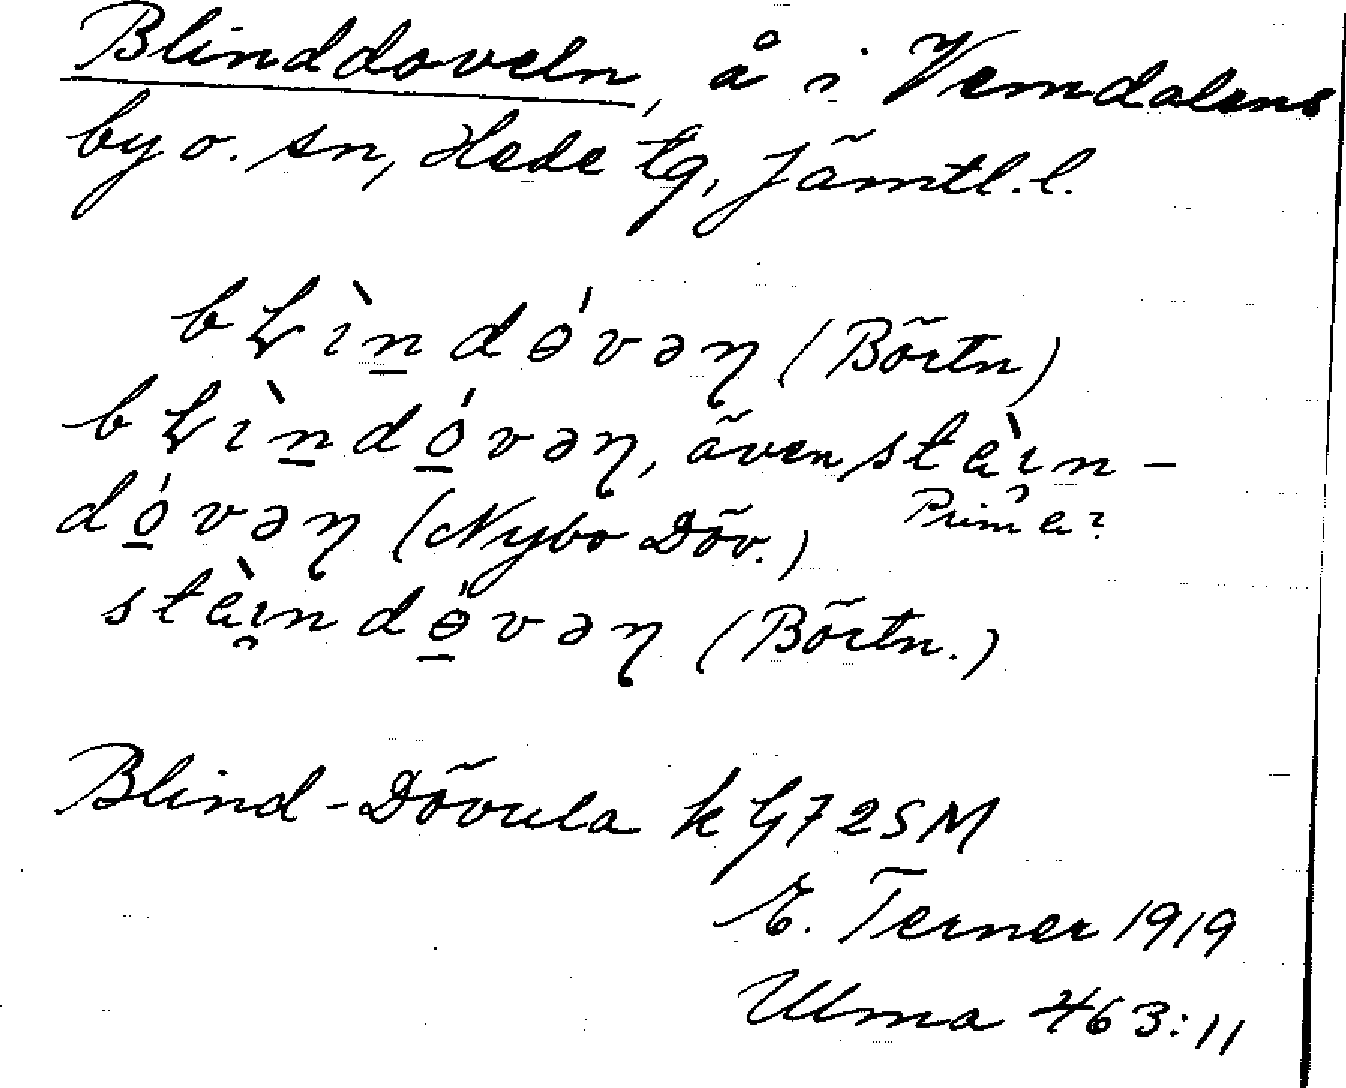 Blinddoveln, å i Vemdalens
by o. sn, Hede tg, Jämtl. l.
bɫìn̲dɵ́vəꞑ (Börtn)
bɫìn̲dó̲vəꞑ, även stàı̯n-
dó̲vəꞑ (Nybo Döv.) Prim a?
stàı̯ndɵ̲́vəꞑ (Börtn.)
Blind-Dövula k G72SM
E. Terner 1919
Ulma 463:11